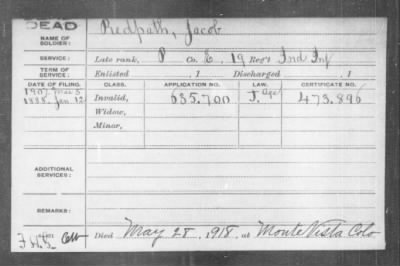 DEAD
NAME OF SOLDIER: Redpath, Jacob
SERVICE: Late rank, P Co. E, 19 Reg't Ind Inf
TERM OF SERVICE: Enlisted , 1 Discharged , 1
DATE OF FILING. CLASS. APPLICATION NO. LAW. CERTIFICATE NO.
1907 Mar 5
1888. Jan 12 Invalid, 635.700 J. Age 473.896
Widow,
Minor,
ADDITIONAL SERVICES:
REMARKS:
Died May 28, 1918, at Monte Vista Colo